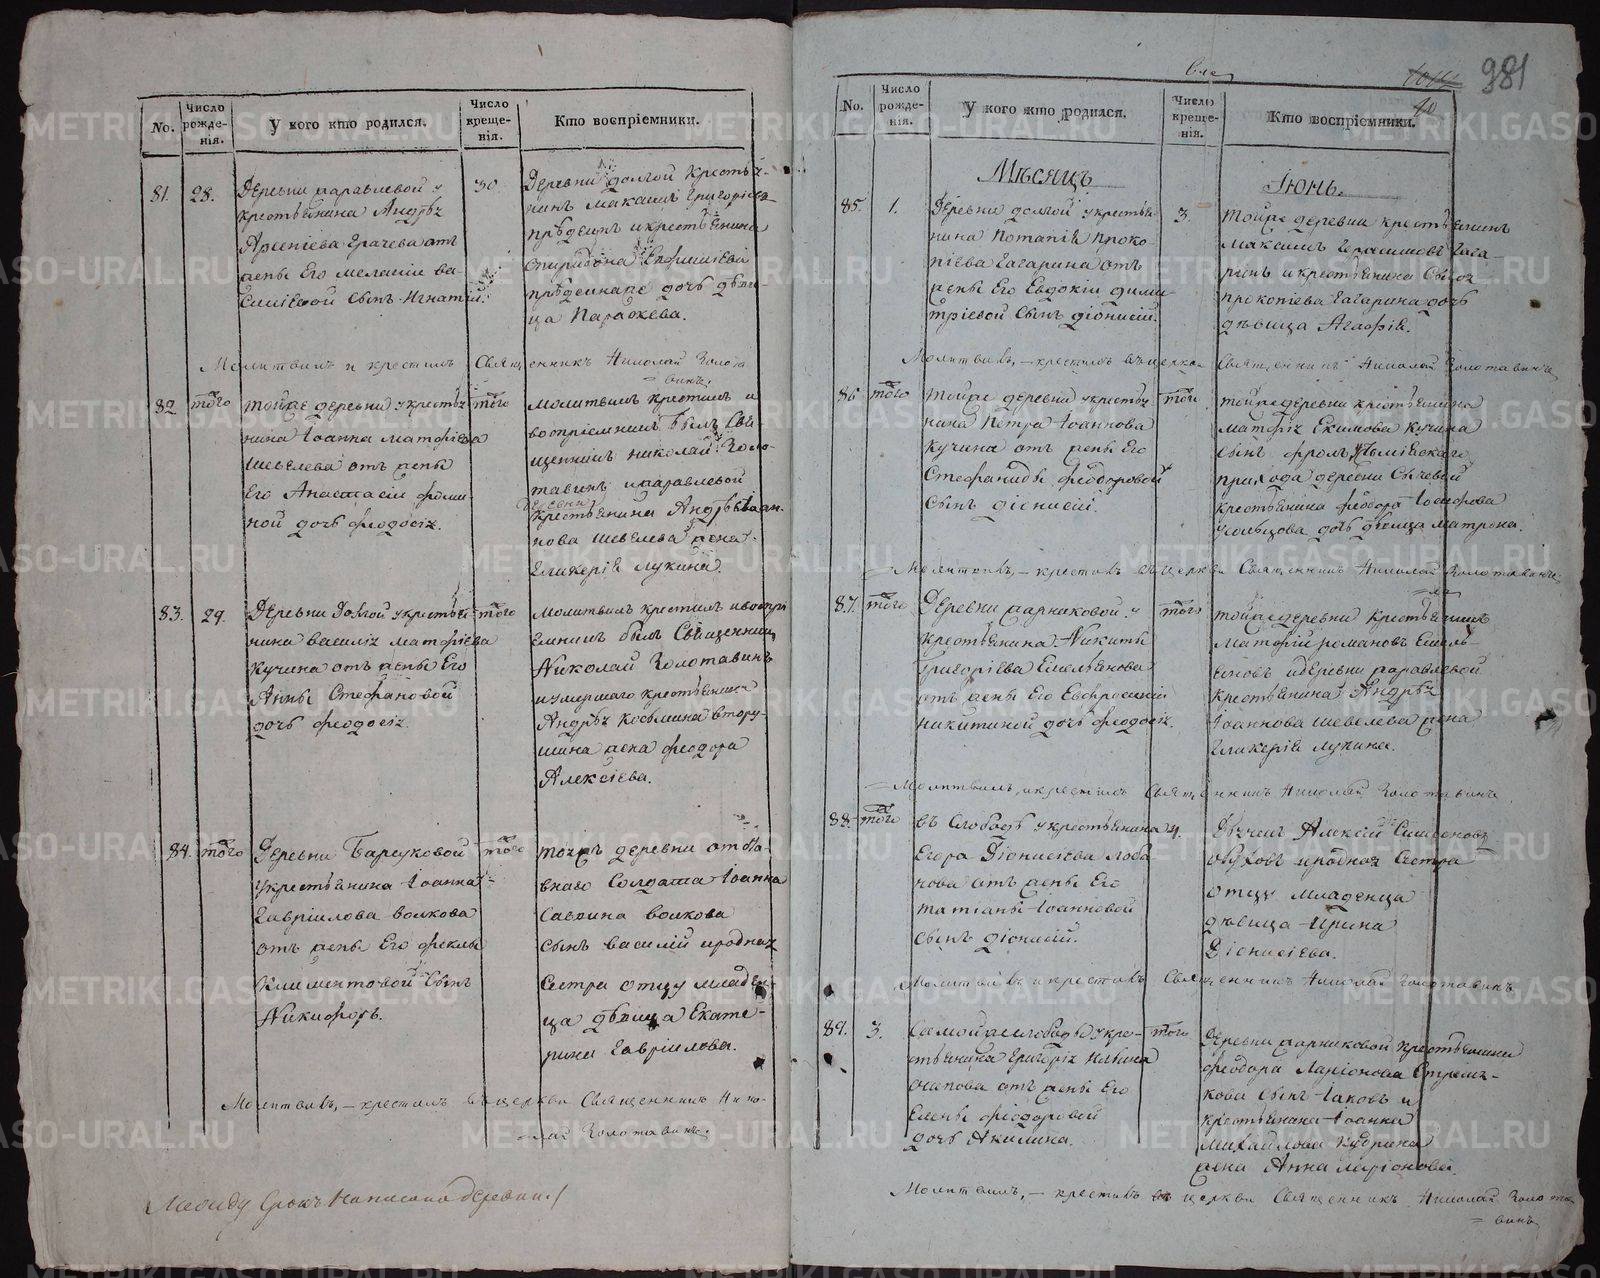 No.
Число рожде-нія.
У кого кто родился.
Число креще-нія.
Кто воспріемники.
81.
28.
Деревни Заравлевой у
крестьянина Андрея
Арсеніева Грачева отъ
жены его Меланіи Ва-
силіевой сынъ Игнатій.
30
Деревни Долгой кресть-
нинъ Максимъ Григоріевъ
и крестьянина
Спиридона Евфиміева
дочь дѣви-
ца Параскева.
Молитвилъ и крестилъ Священникъ Николай Золота
=винъ.
82.
того
Тойже деревни у крестья
нина Іоанна Матфіева
Шевелева отъ жены
его Анастасіи Фоми-
ной дочь Феодосія.
того
Молитвилъ крестилъ и
воспріемникъ былъ Свя-
щенникъ Николай Золо-
тавинъ и Заравлевой
деревни
крестьянина Андрея Іоан-
нова Шевелева жена
Гликерія Лукина.
83.
29.
Деревни Долгой у кресть
нина Василія Матфіева
Кучина отъ жены его
Анны Стефановой
дочь Феодосія.
того
Молитвилъ крестилъ и воспрі
емникъ былъ Священникъ
Николай Золотавинъ
и умершаго крестьянина
Андрея Космина Втору-
шина жена Феодора
Алексіева.
84.
того
Деревни Барсуковой
у крестьянина Іоанна
Гавріилова Волкова
отъ жены его Феклы
Климентовой сынъ
Никифоръ.
того
тоижъ деревни отста-
внаго Солдата Іоанна
Саввина Волкова
сынъ Василій и родная
Сестра отцу младен
ца дѣвица Екате-
рина Гавріилова.
Молитвилъ, – крестилъ въ церкви Священникъ Нико-
=лай Золотавинъ.
Между строкъ написано деревни./
981
40
No.
Число рожде-нія.
У кого кто родился.
Число креще-нія.
Кто воспріемники.
Мѣсяцъ
Іюнь.
85.
1.
Деревни Долгой у крестья
нина Потапія Проко-
піева Гагарина отъ
жены его Евдокіи Дими-
тріевой сынъ Діонисій.
3.
тойже деревни крестьянинъ
Максимъ Герасимовъ Гага-
ринъ и крестьянина
Прокопіева Гагарина дочь
дѣвица Агафія.
Молитвилъ, – крестилъ въ церкви Священникъ Николай Золотавинъ
86
того
Тойже деревни у крестья
нина Петра Іоаннова
Кучина отъ жены его
Стефаниды Феодоровой
сынъ Діонисій.
того
тойже деревни крестьянина
Матфія Екимова Кучина
сынъ Фролъ
прихода деревни Сычевой
крестьянина Феодора Іосифова
дочь дѣвица Матрона.
Молитвилъ, – крестилъ въ церкви Священникъ Николай Золотавинъ
87.
того
Деревни Марниковой у
крестьянина Никиты
Григоріева Емельянова
отъ жены его Евфросиніи
Никитиной дочь Феодосія.
того
тойже деревни крестьянинъ
Матфій Романовъ Емель-
яновъ и деревни Заравлевой
крестьянина Андрея
Іоаннова Шевелева жена
Гликерія Лукина.
Молитвилъ, и крестилъ Священникъ Николай Золотавинъ
88.
того
въ Слободѣ у крестьянина
Егора Діонисіева Лоба
чова отъ жены его
Татіаны Іоанновой
сынъ Діонисій.
4.
Дьячекъ Алексій Симеоновъ
и родная Сестра
отцу младенца
дѣвица Ирина
Діонисіева.
Молитвилъ и крестилъ Священникъ Николай Золотавинъ
89.
3.
Самойже слободы у кре-
стьянина Григорія
отъ жены его
Елены Феодоровой
дочь Акилина.
того
Деревни Марниковой крестьянина
Феодора Ларіонова Стрель-
кова сынъ Іаковъ и
крестьянина Іоанна
Михайлова Кудрина
жена Анна Ларіонова.
Молитвилъ, – крестилъ въ церкви Священникъ Николай Золота
=винъ
METRIKI.GASO-URAL.RU